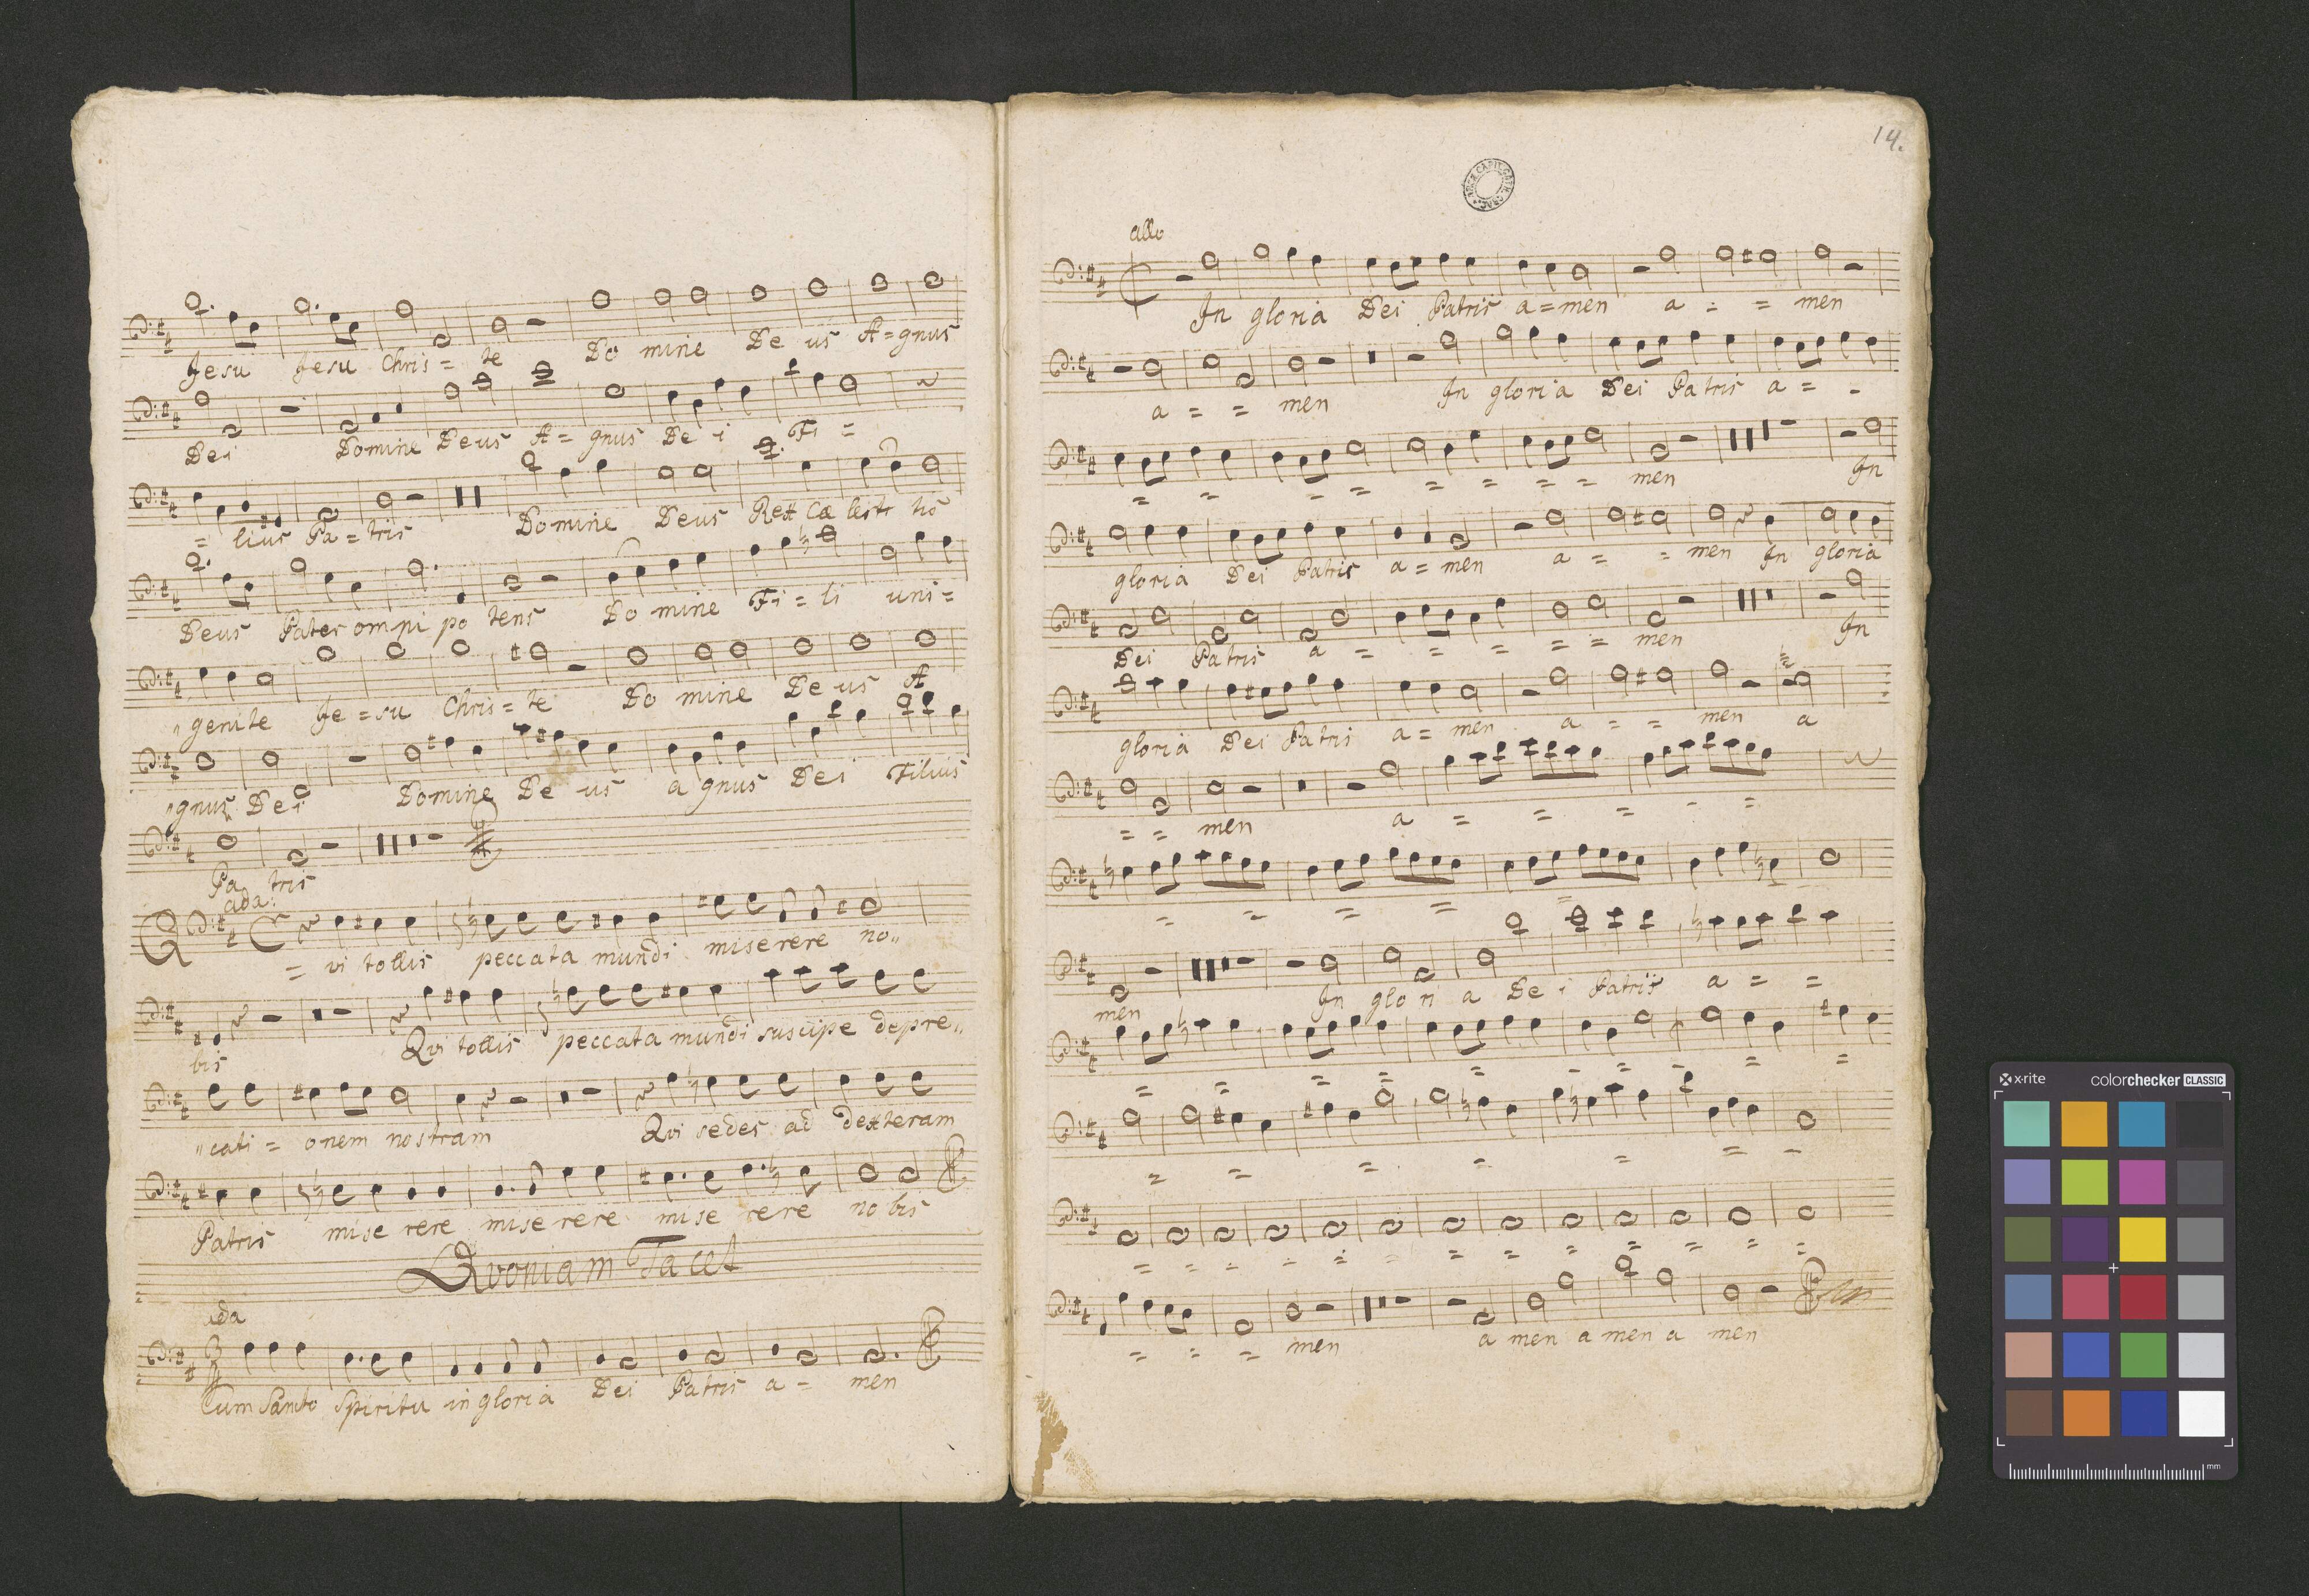 Jesu Jesu Chris = te Do mine De us A = gnus
Dei Domine Deus A = gnus De i Fi =
= lius Pa = tris Domine Deus Rex Cæ lesti
Deus Pater omni po tens Do mine Fi = li uni =
"genite Je = su Chris = te Do mine De us A
"gnus Dei Domine De us a gnus Dei Filius
Pa tris
ada:
Q = vi tollis peccata mundi miserere no"
bis Qvi tollis peccata mundi suscipe depre"
"cati = onem nostram Qvi sedes ad dexteram
Patris mise rere mise rere mi se rere no bis
Qvoniam Tacet
ada
Cum Sancto Spiritu in gloria Dei Patris a = men
14.
allo
In gloria Dei Patris a = men a = = men
a = = men In gloria Dei Patris a = =
= = = = = = = = men In
gloria Dei Patris a = men a = = men In gloria
Dei Patris a = = = = = men In
gloria Dei Patris a = men a = = men a
= = men a = = = = =
= = = = =
men In glo ri a De i Patris a = =
= = = = = = = = =
= = = = = = =
= = = = = = = = = = = = =
= = = men a men a men a men